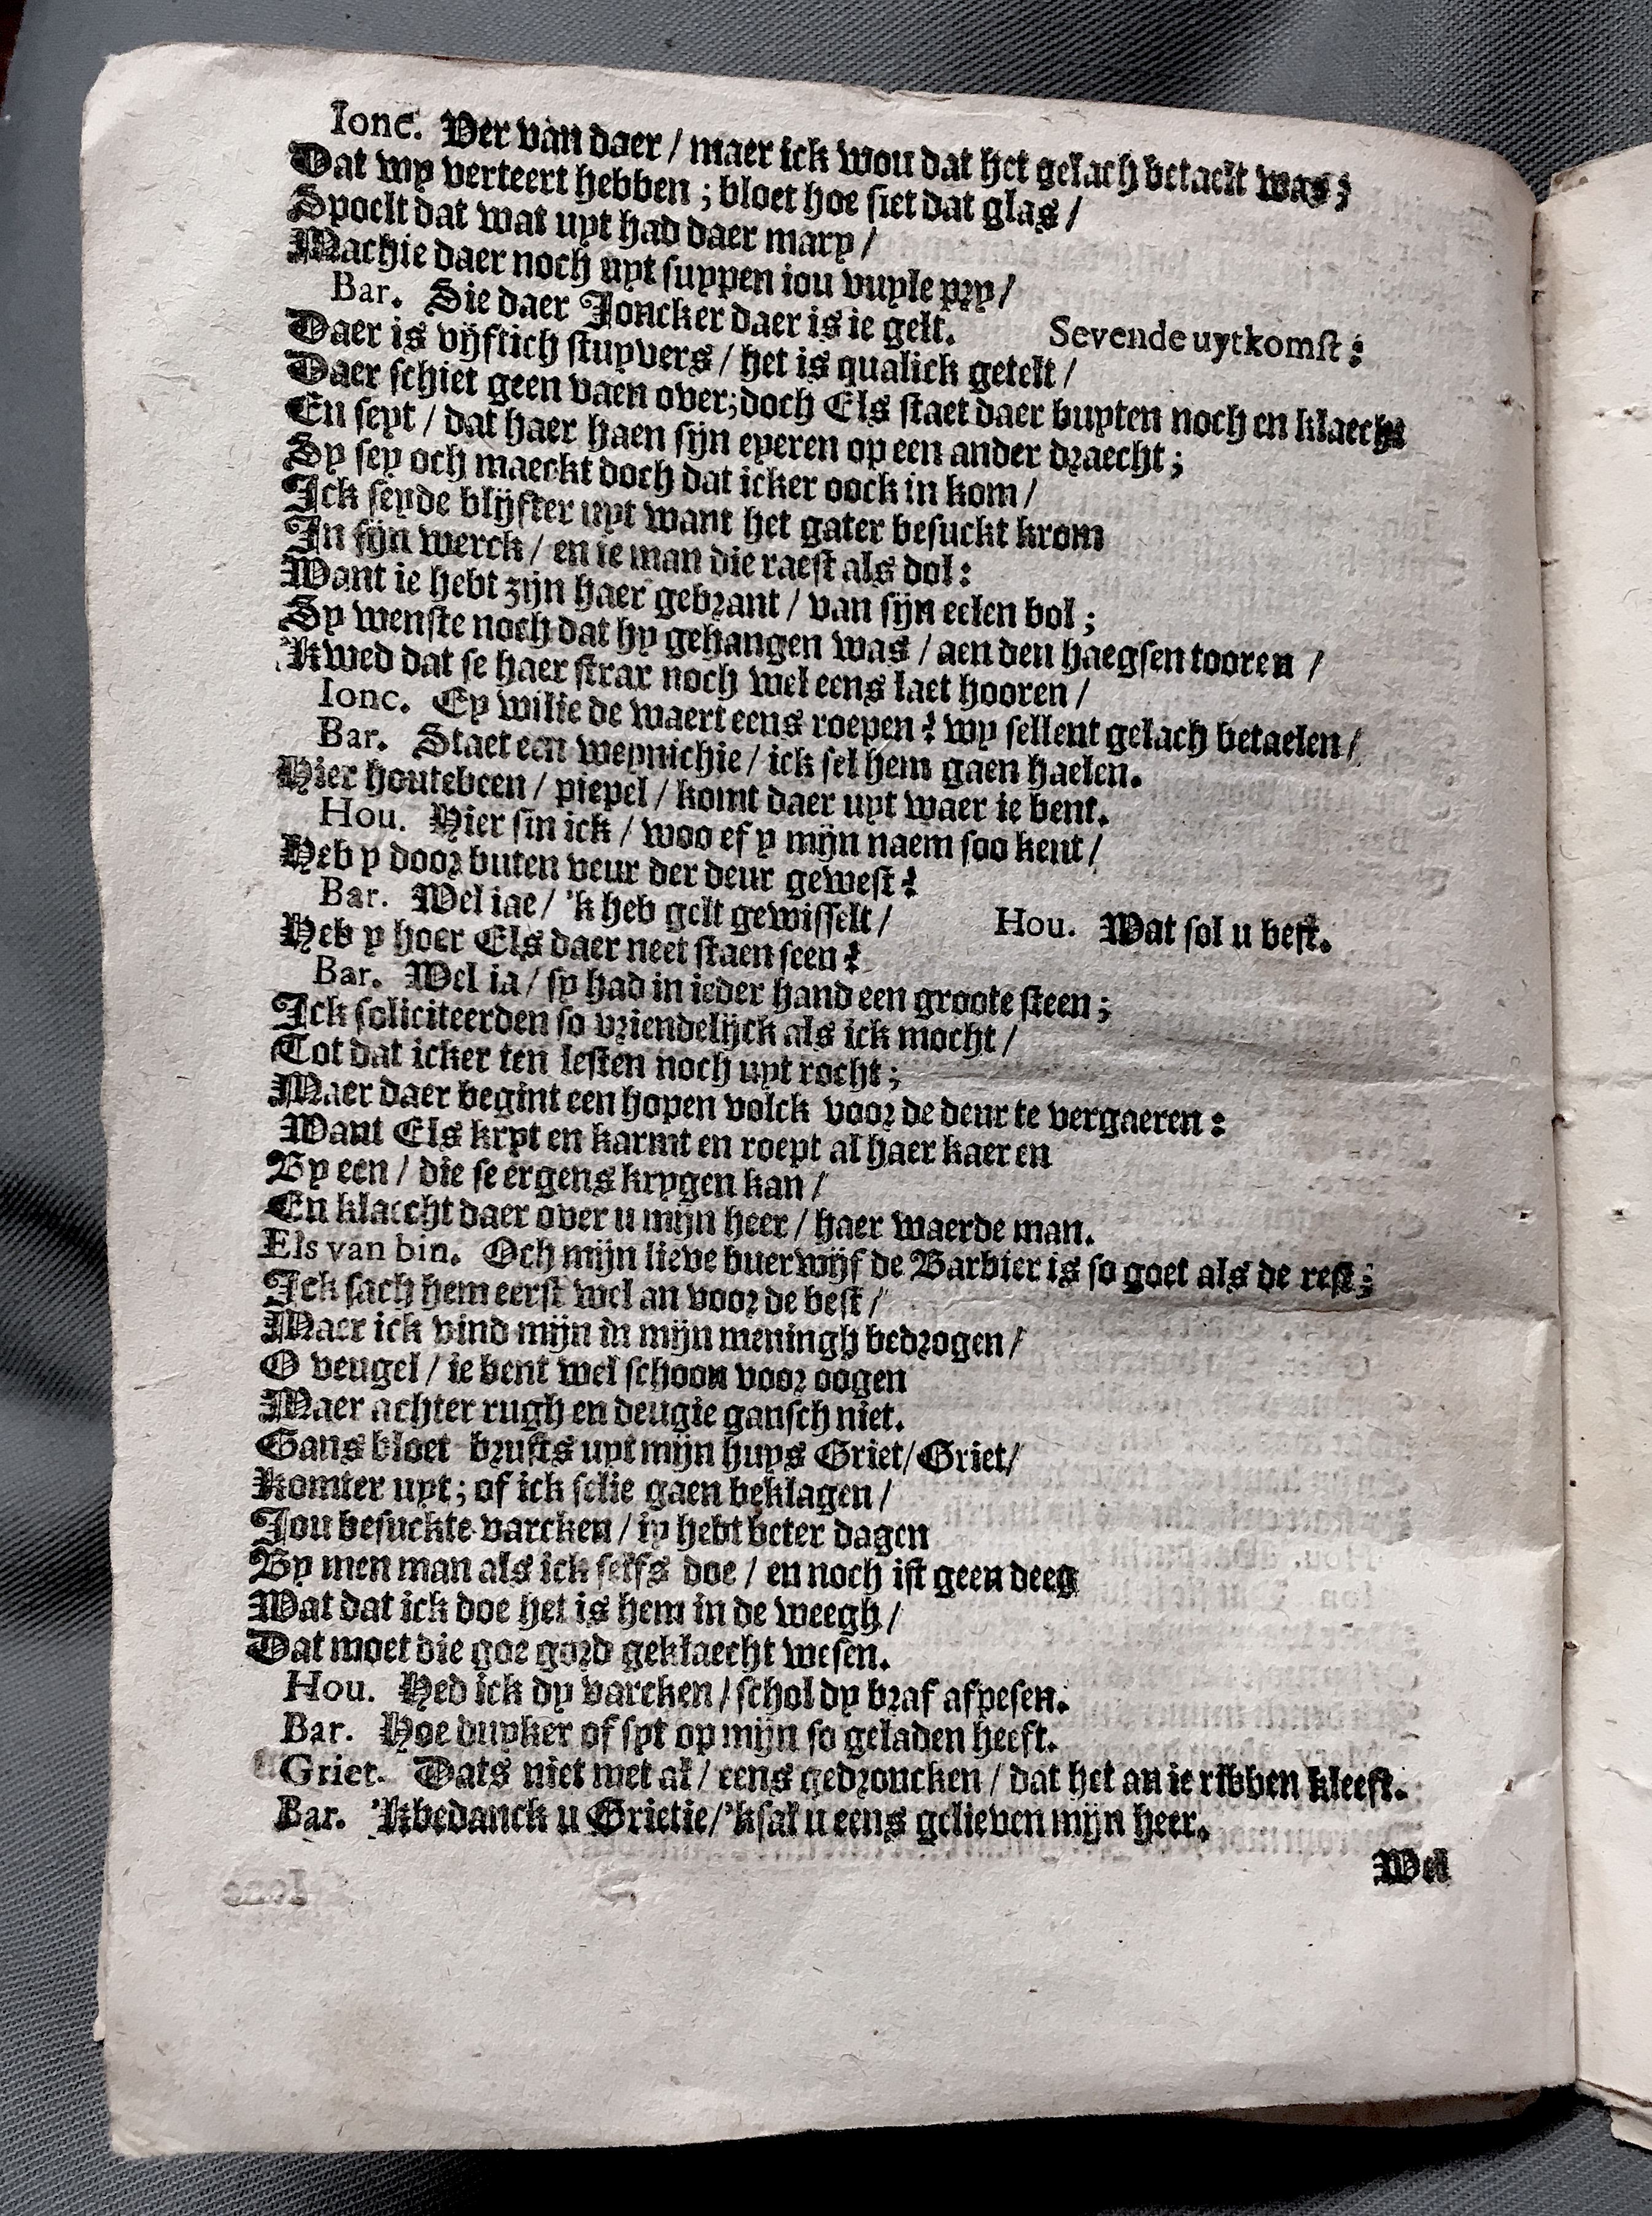 Ionc. Ver van daer / maer ick wou dat het gelach betaelt was;
Dat wy verteert hebben ; bloet hoe siet dat glas /
Spoelt dat wat uyt had daer mary /
Machie daer noch uyt suypen iou vuyle pry /
Bar. Sie daer Joncker daer is ie gelt. Sevende uytkomst :
Daer is vijftich stuyvers / het is qualick getelt /
Daer schiet geen vaen over; doch Els staet daer buyten noch en klaecht
En seyt / dat haer haen sijn eyeren op een ander draecht ;
Sy sey och maeckt doch dat icker oock in kom /
Ick seyde blijfter uyt want het gater besuckt krom
In sijn werck / en ie man die raest als dol :
Want ie hebt zijn haer gebrant / van sijn eelen bol ;
Sy wenste noch dat hy gehangen was / aen den haegsen tooren /
'Kwed dat se haer strax noch wel eens laet hooren /
Ionc. Ey wilie de waert eens roepen ? wy sellent gelach betaelen /
Bar. Staet een weynichie / ick sel hem gaen haelen.
Hier houtebeen / piepel / komt daer uyt waer ie bent.
Hou. Hier sin ick / woo ef y mijn naem soo kent /
Heb y door buten veur der deur gewest ?
Bar. Wel iae / 'k heb gelt gewisselt / Hou. Wat sol u best.
Heb y hoer Els daer neet staen seen ?
Bar. Wel ia / sy had in ieder hand een groote steen ;
Ick soliciteerden so vriendelijck als ick mocht /
Tot dat icker ten lesten noch uyt rocht ;
Maer daer begint een hopen volck voor de deur te vergaeren :
Want Els kryt en karmt en roept al haer kaeren
By een / die se ergens krygen kan /
En klaecht daer over u mijn heer / haer waerde man.
Els van bin. Och mijn lieve buerwijf de Barbier is so goet als de rest ;
Ick sach hem eerst wel an voor de best /
Maer ick vind mijn in mijn meningh bedrogen /
O veugel / ie bent wel schoon voor oogen
Maer achter rugh en deugie gansch niet.
Gans bloet brufts uyt mijn huys Griet / Griet /
Komter uyt ; of ick selie gaen beklagen /
Jou besuckte varcken / iy hebt beter dagen
By men man als ick selfs doe / en noch ist geen deeg
Wat dat ick doe het is hem in de weegh /
Dat moet die goe gord geklaecht wesen.
Hou. Hed ick dy varcken / schol dy braf afpesen.
Bar. Hoe duyker of syt op mijn so geladen heeft.
Griet. Dats niet met al / eens gedroncken / dat het an ie ribben kleeft.
Bar. 'Kbedanck u Grietie / 'ksal u eens gelieven mijn heer.
Wel